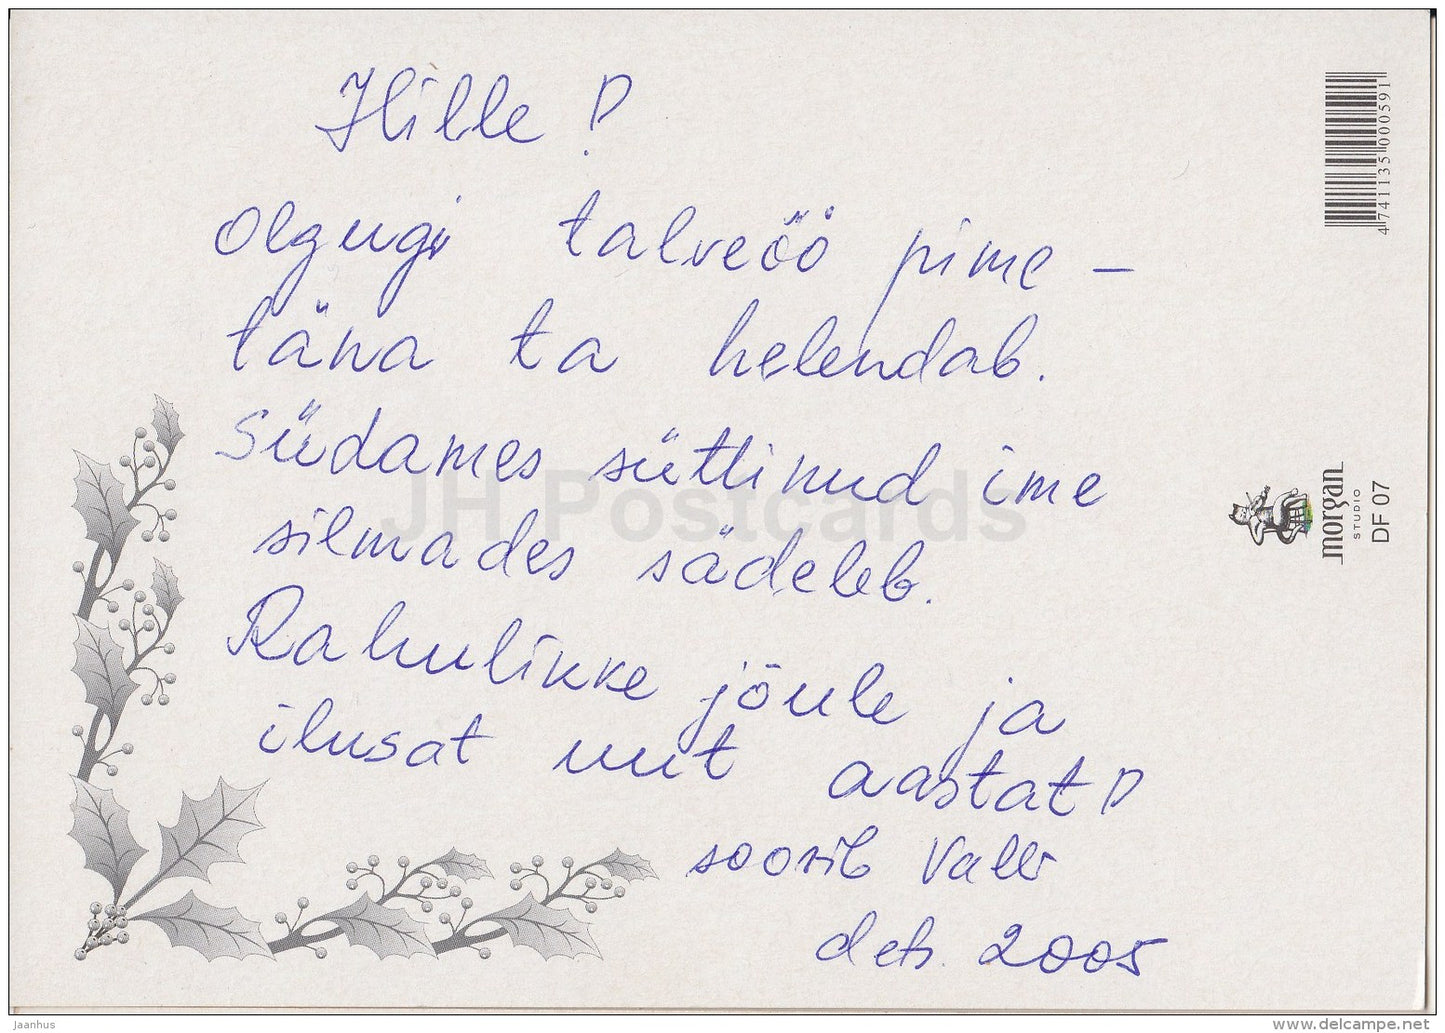 Hille!
Olgugi talveöö pime –
täna ta helendab.
Südames süttinud ime
silmades sädeleb.
Rahulikke jõule ja
ilusat uut aastat!
soovib Valli
dets. 2005
4741135000591
morgan
STUDIO
DF 07
JH Postcards
Jaanhus
www.delcampe.net